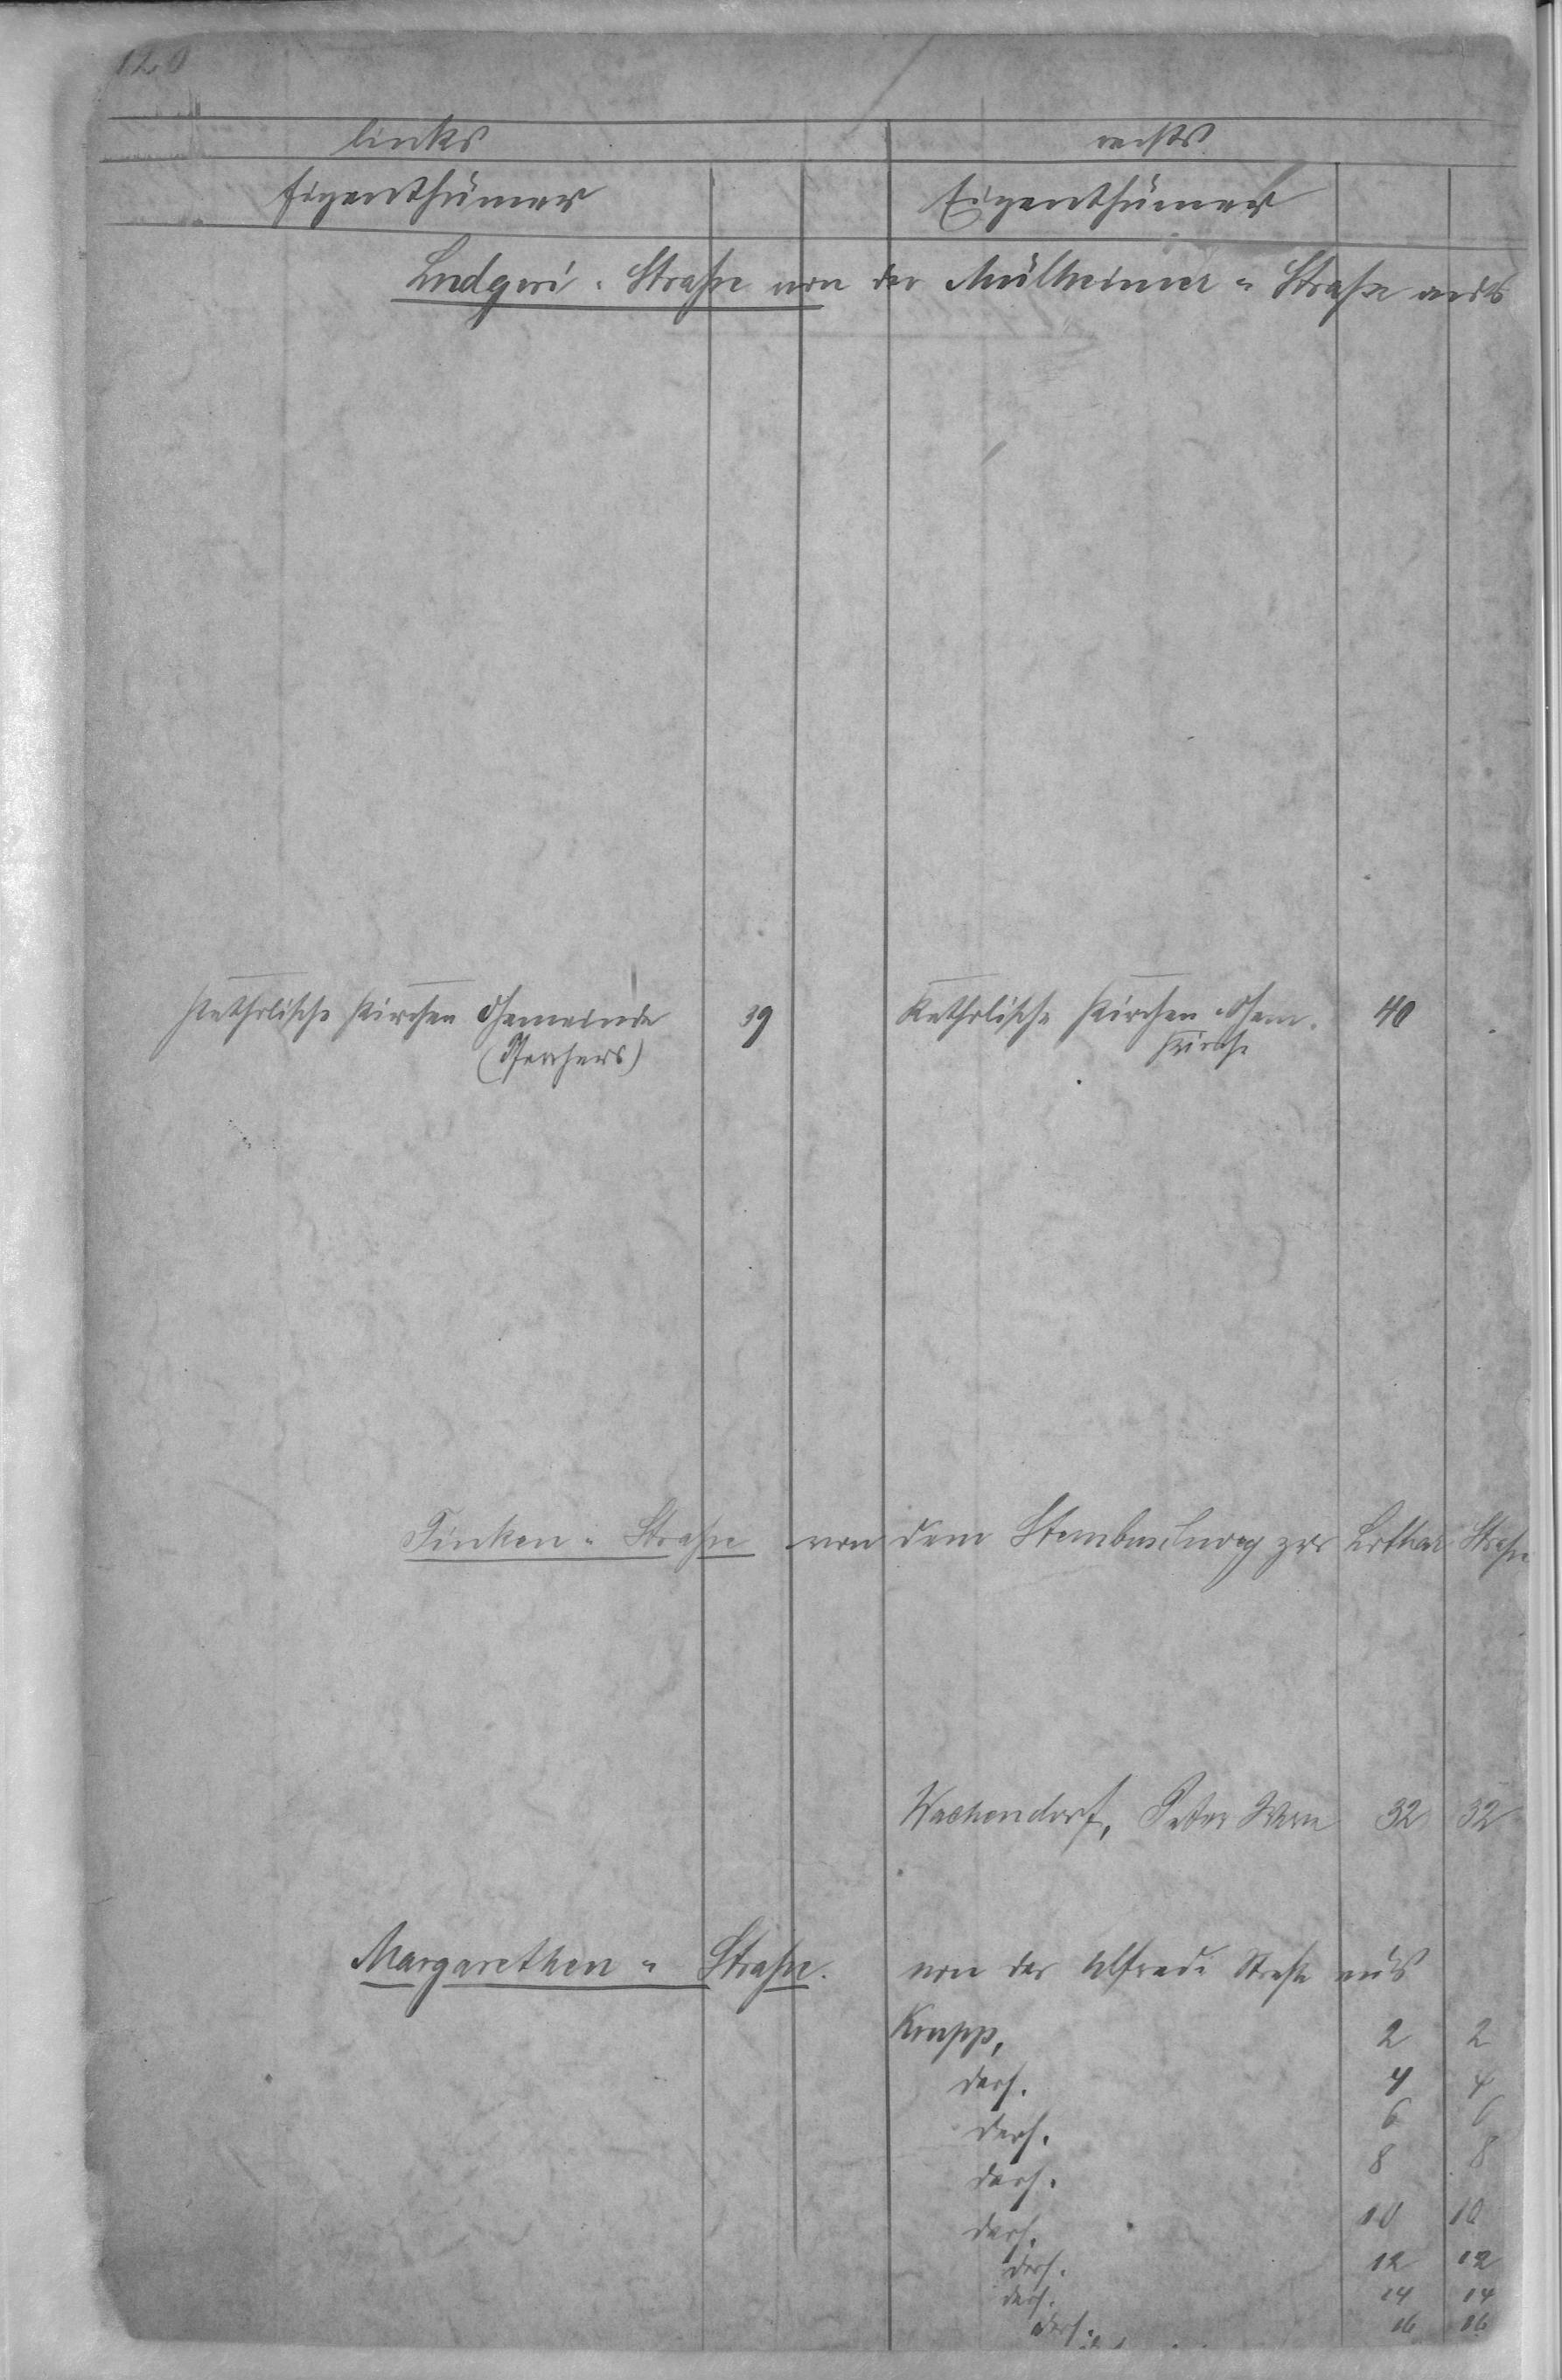 120
links rechts
Eigenthümer Eigenthümer
Ludgeri-Straße von der Mülheimer-Straße aus
Katholische Kirchen Gemeinde 39 Katholische Kirchen-Gem. 40
(Pfarrhaus) Kirche
Finken-Straße von dem zur Lothar Straße
Wachendorf, Peter Wwe 32 32
Margarethen-Straße. von der Alfredi Straße aus
Krupp, 2 2
ders. 4 4
ders. 6 6
ders. 8 8
ders. 10 10
ders. 12 12
ders. 14 14
ders. 16 16